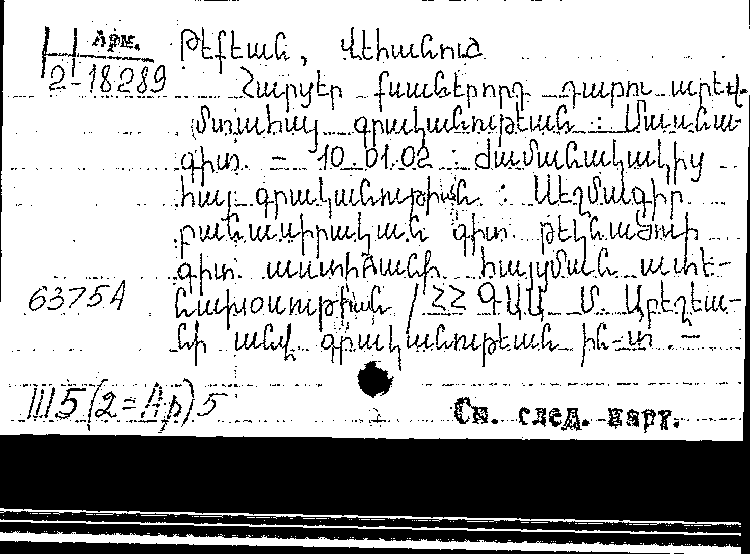 Арм.
2-18289
Թէքէան, Վեհանուշ
Հարցեր քսաներորդ դարու արեվ-
մտահայ գրականութեան : Մասնա-
գիտ. - 10.01.02 : Ժամանակակից
հայ գրականութիւն : Սեղմագիր
բանասիրական գիտ. թեկնածուի
գիտ. աստիճանի հայցման ատե-
նախօսութիան / ՀՀ ԳԱԱ Մ. Աբեղեա-
նի անվ. գրականութեան ին-տ. -
6375А
1115(2=Ар)5
См. след. карт.